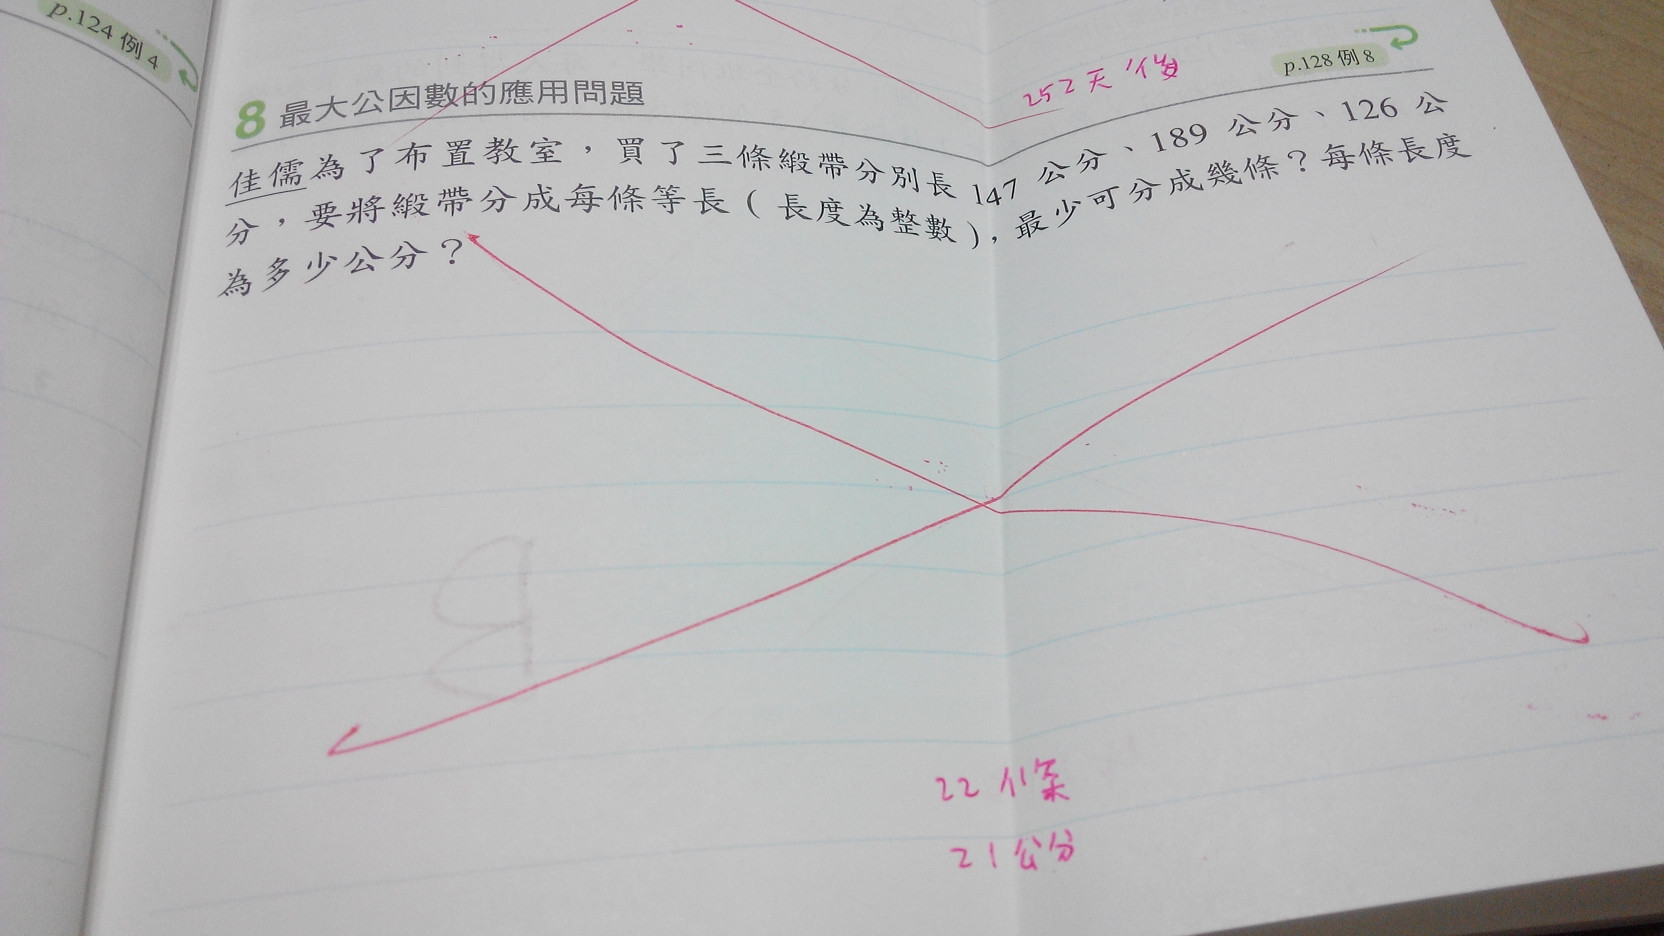 p.124 例 4
252天後
p.128 例 8
8 最大公因數的應用問題
佳儒為了布置教室,買了三條緞帶分別長 147 公分、189 公分、126 公
分,要將緞帶分成每條等長(長度為整數),最少可分成幾條?每條長度
為多少公分?
22條
21公分